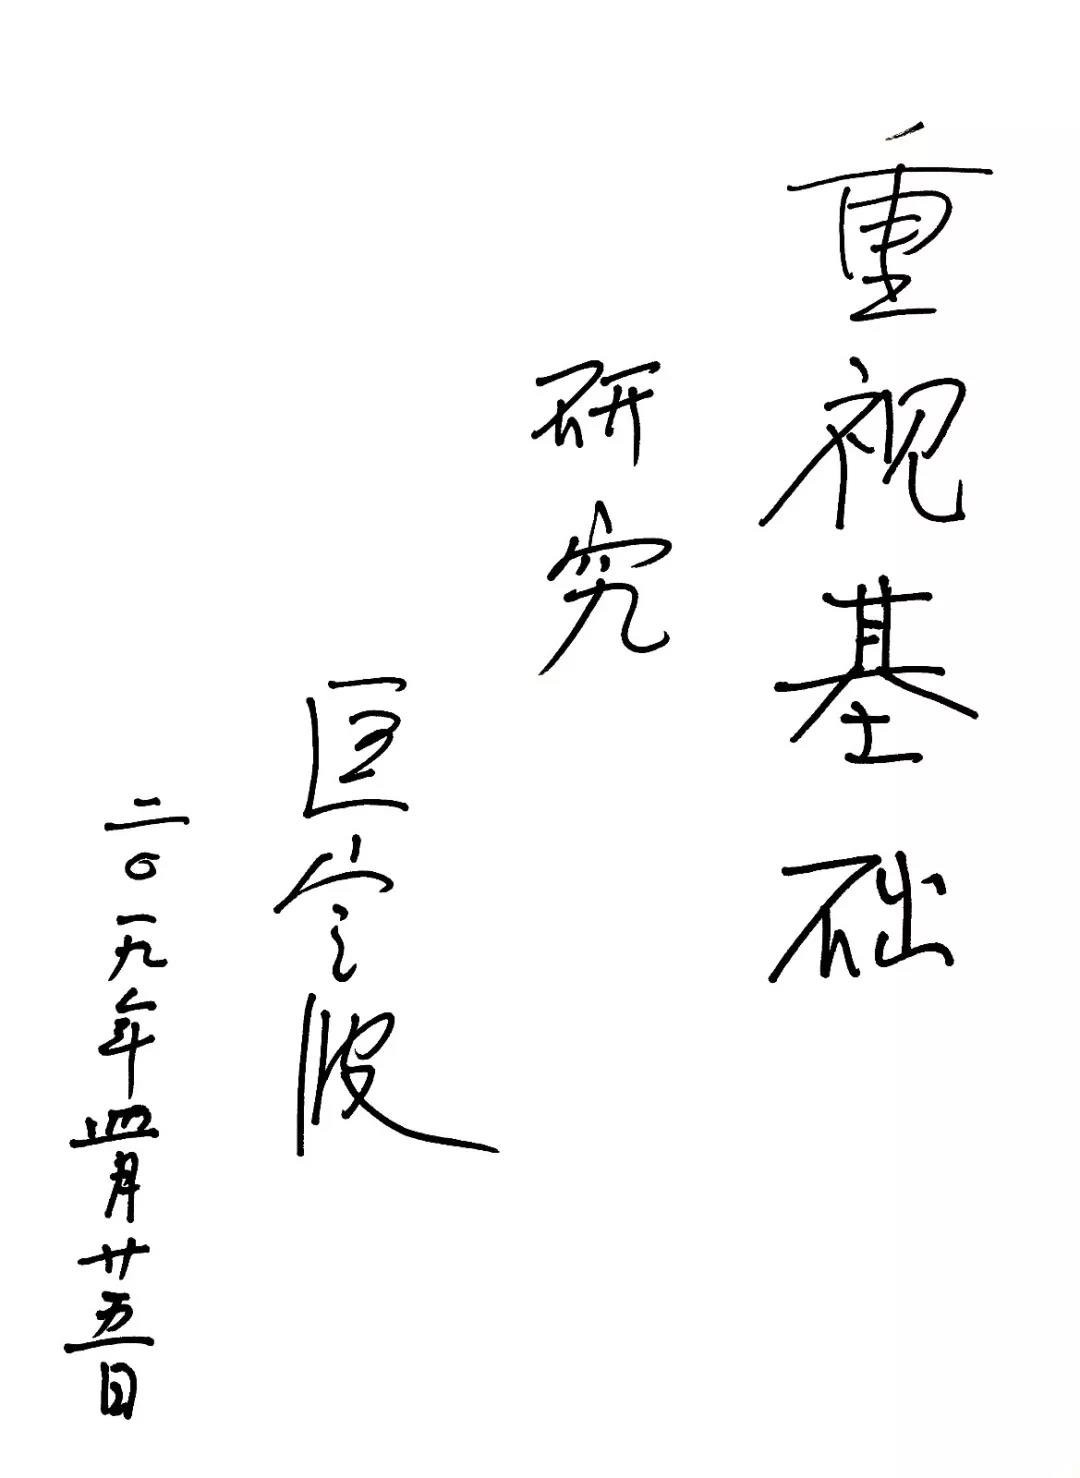 重视基础
研究
匡定波
二〇一九年四月廿五日